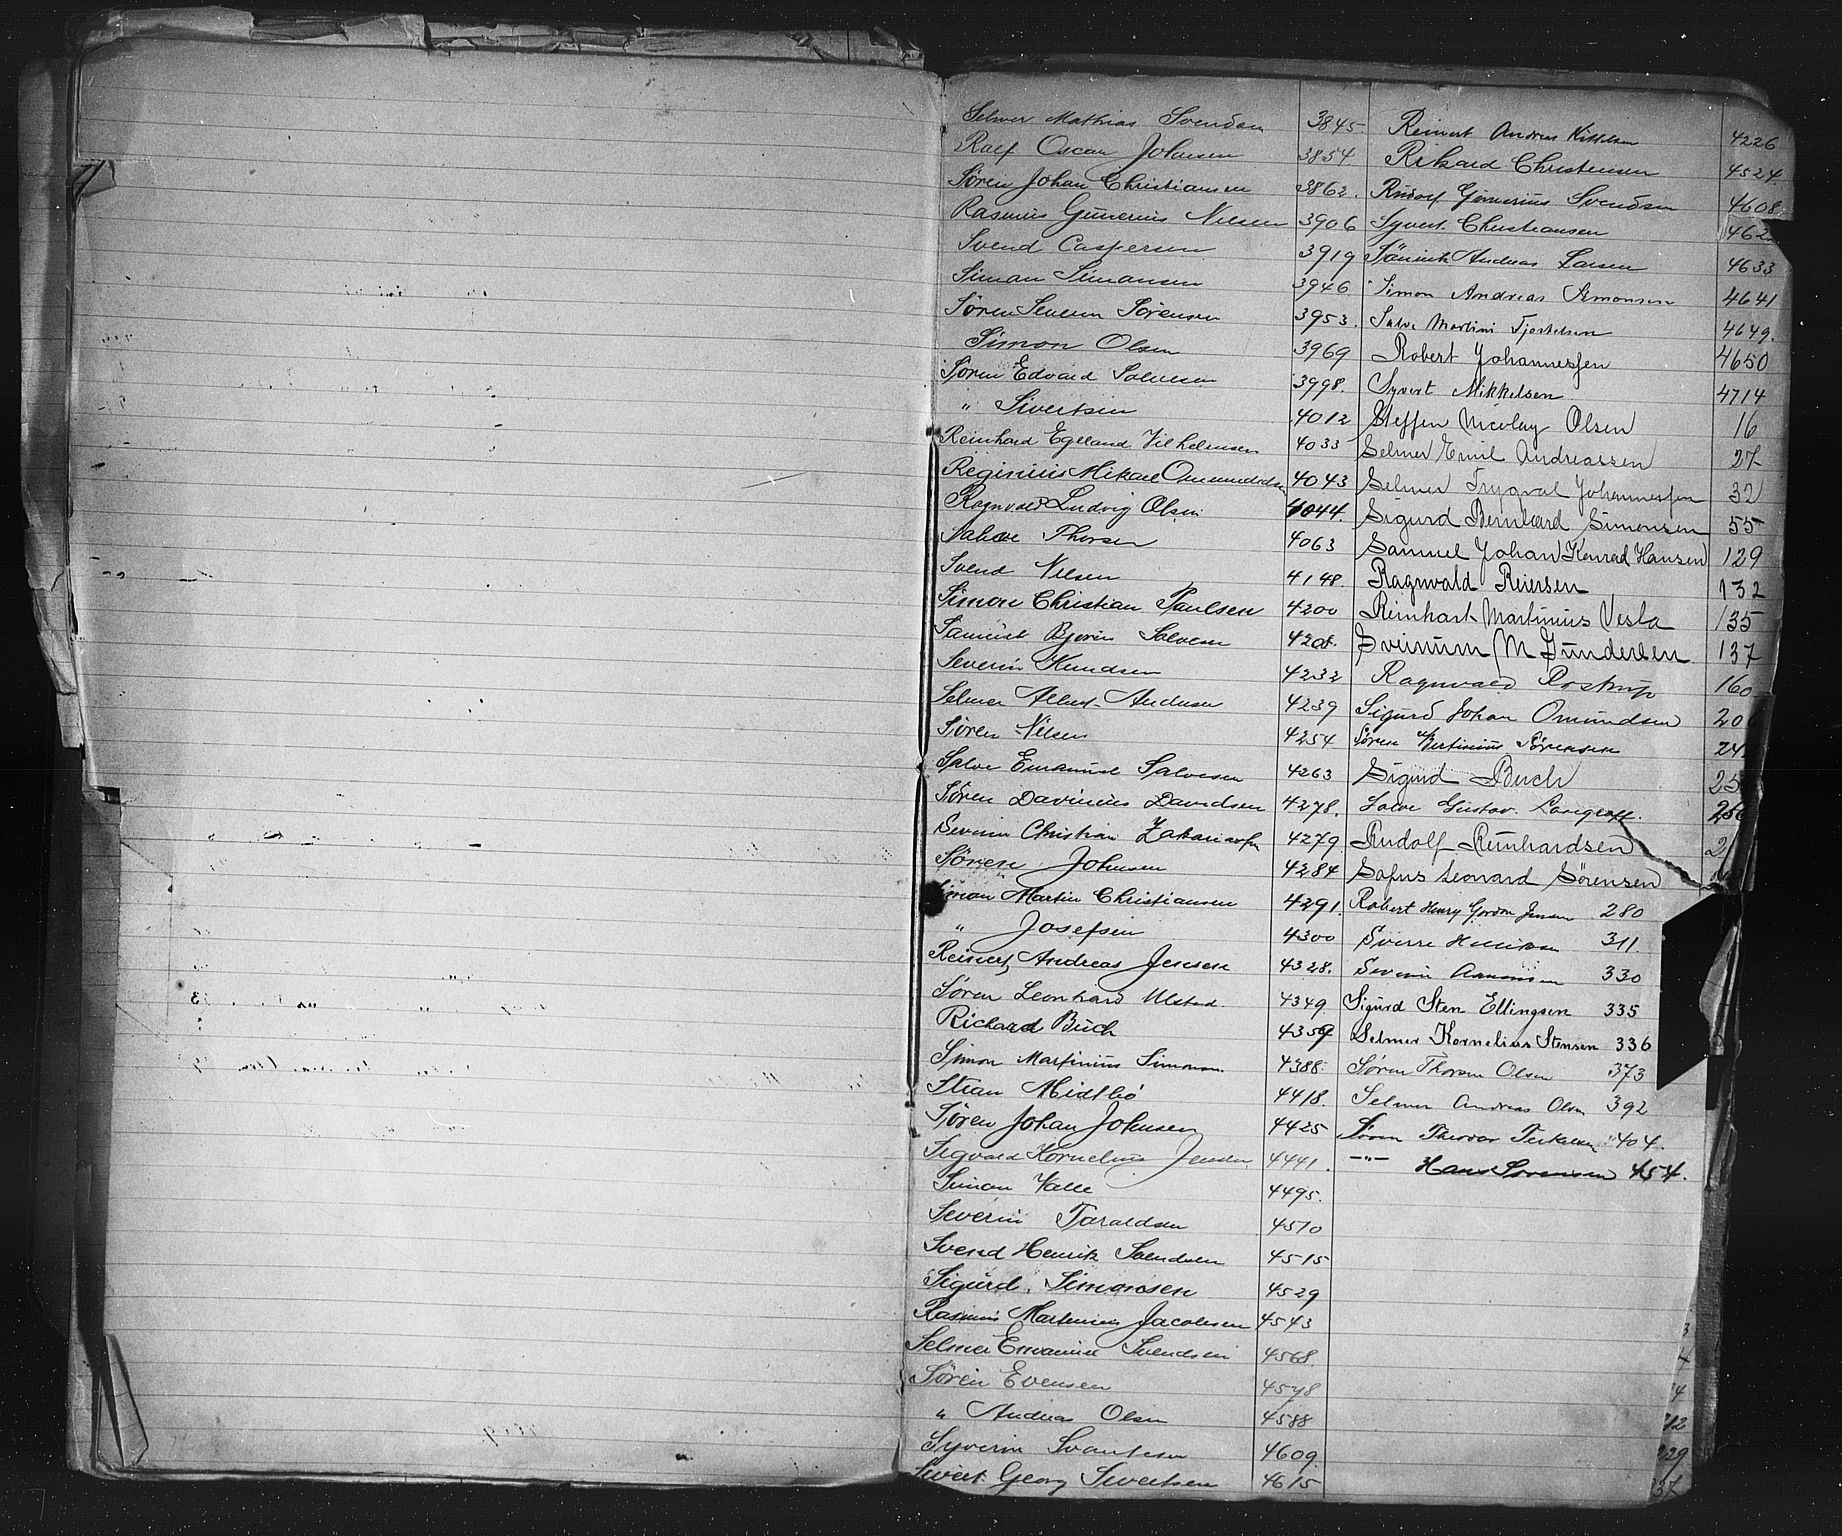 Selmer Mathias Svendsen 3845
Ralf Oscar Johnsen 3854
Søren Johan Christiansen 3862.
Rasmus Gunerius Nilsen 3906
Svend Caspersen 3919
Simon Simonsen 3946
Søren Severin Sørensen 3953.
Simon Olsen 3969
Søren Edvard Salvesen 3998.
" Sivertsen 4012
Reinhard Egeland Vilhelmsen 4033
Reginius Mikael Omundsen 4043
Ragnvald Ludvig Olsen 4044.
Thorsen 4063
Svend Nilsen 4148.
Simon Christian Paulsen 4200
Samuel Bjorn Salvesen 4208.
Severin Knudsen 4232
Selmer Albert Andersen 4239
Søren Nilsen 4254
Salve Emanuel Salvesen 4263
Søren Davinius Davidsen 4278.
Severin Christian Zakariasen 4279
Søren Johnsen 4284
Simon Martin Christiansen 4291.
" Josefsen 4300
Reinert Andreas Jensen 4328.
Søren Leonhard Ulstad 4349
Richard Buch 4359
Simon Martinius Simonsen 4388.
Stian Midtbö 4418.
Søren Johan Johnsen 4425
Sigvald Kornelius Jensen 4441.
Simon Valle 4495.
Severin Taraldsen 4510
Svend Henrik Svendsen 4515
Sigurd Simonsen 4529
Rasmus Martinius Jacobsen 4543
Selmer Emanuel Svendsen 4568.
Søren Evensen 4578
" Andreas Olsen 4588
Syverin Svantesen 4609.
Sivert Georg Sivertsen 4615
Reinert Andreas Kittelsen 4226
Rikard Christensen 4524.
Rudolf Gunerius Svendsen 4608.
Syvert Christiansen 462
Andreas Larsen 4633
Simon Andreas Simonsen 4641
Salve Martini 4649.
Robert Johannesen 4650
Syvert Mikkelsen 4714
Steffen Nicolay Olsen 16
Selmer Emil Andreassen 27
Selmer Trygval Johannessen 32
Sigurd Bernhard Simonsen 55
Samuel Johan Konrad Hansen 129
Ragnvald Reiersen 132
Reinhart Martinius Vesla 135
M Gundersen 137
Ragnvald Rostrup 160
Sigurd Johan Omundsen 20
Søren Bertinius Sørensen 24
Sigurd Buch 25
Salve Gustav 256
Rudolf Reinhardsen 2
Sofus Leonard Sörensen
Robert Henry Gordon Jensen 280
Sverre Henriksen 311
Severin 330
Sigurd Sten Ellingsen 335
Selmer Kornelius Stensen 336
Søren Thorsen Olsen 373
Selmer Andreas Olsen 392
Søren Theodor Terkelsen 404.
—"— Hans Sørensen 454.